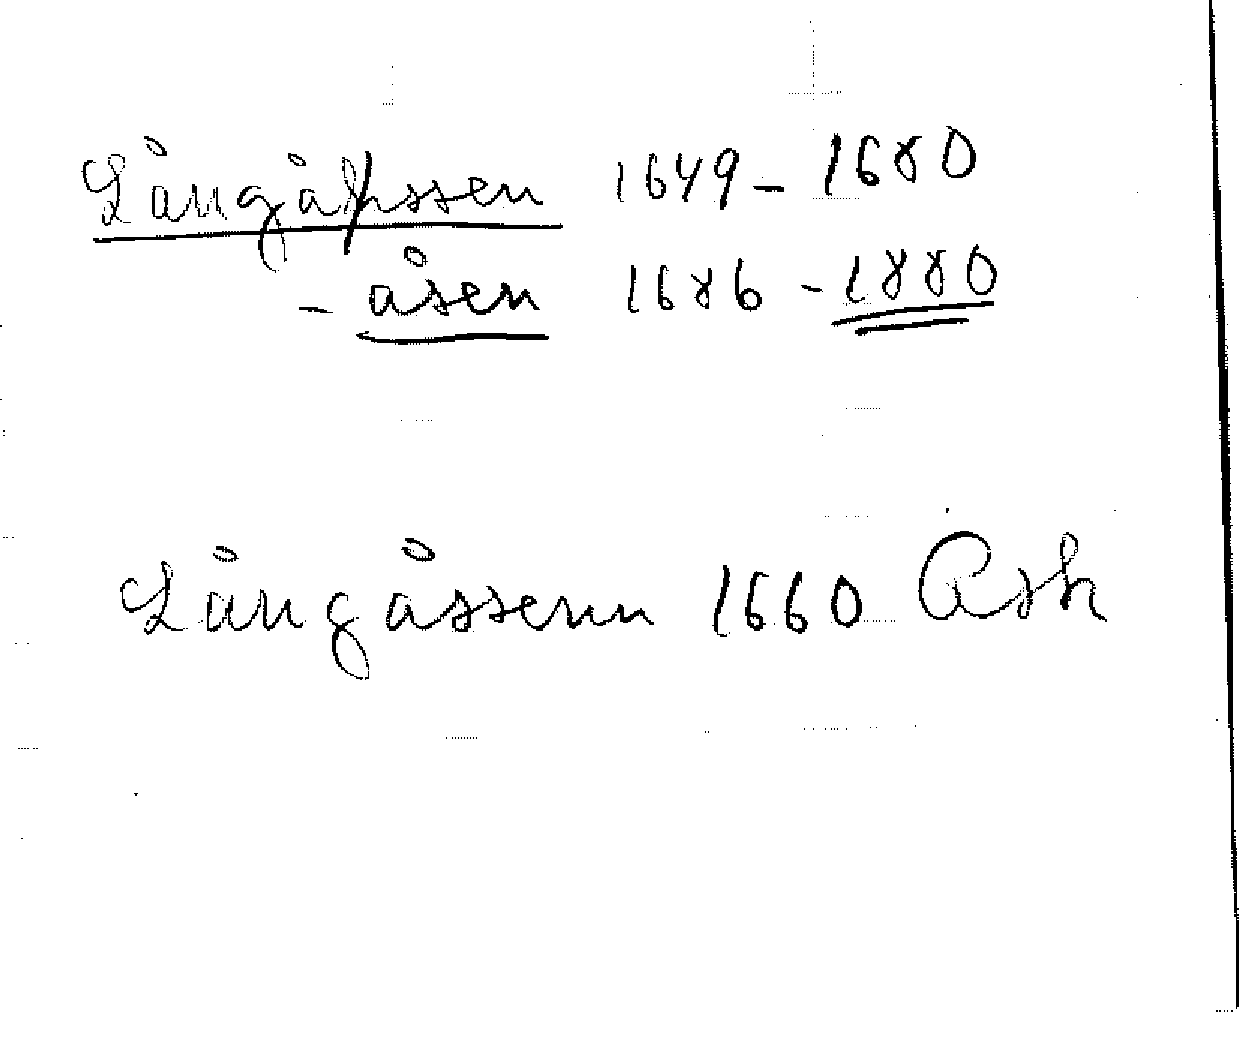 Långåssen 1649 – 1680
– åsen 1686 – 1880
Långåssenn 1660 Ask